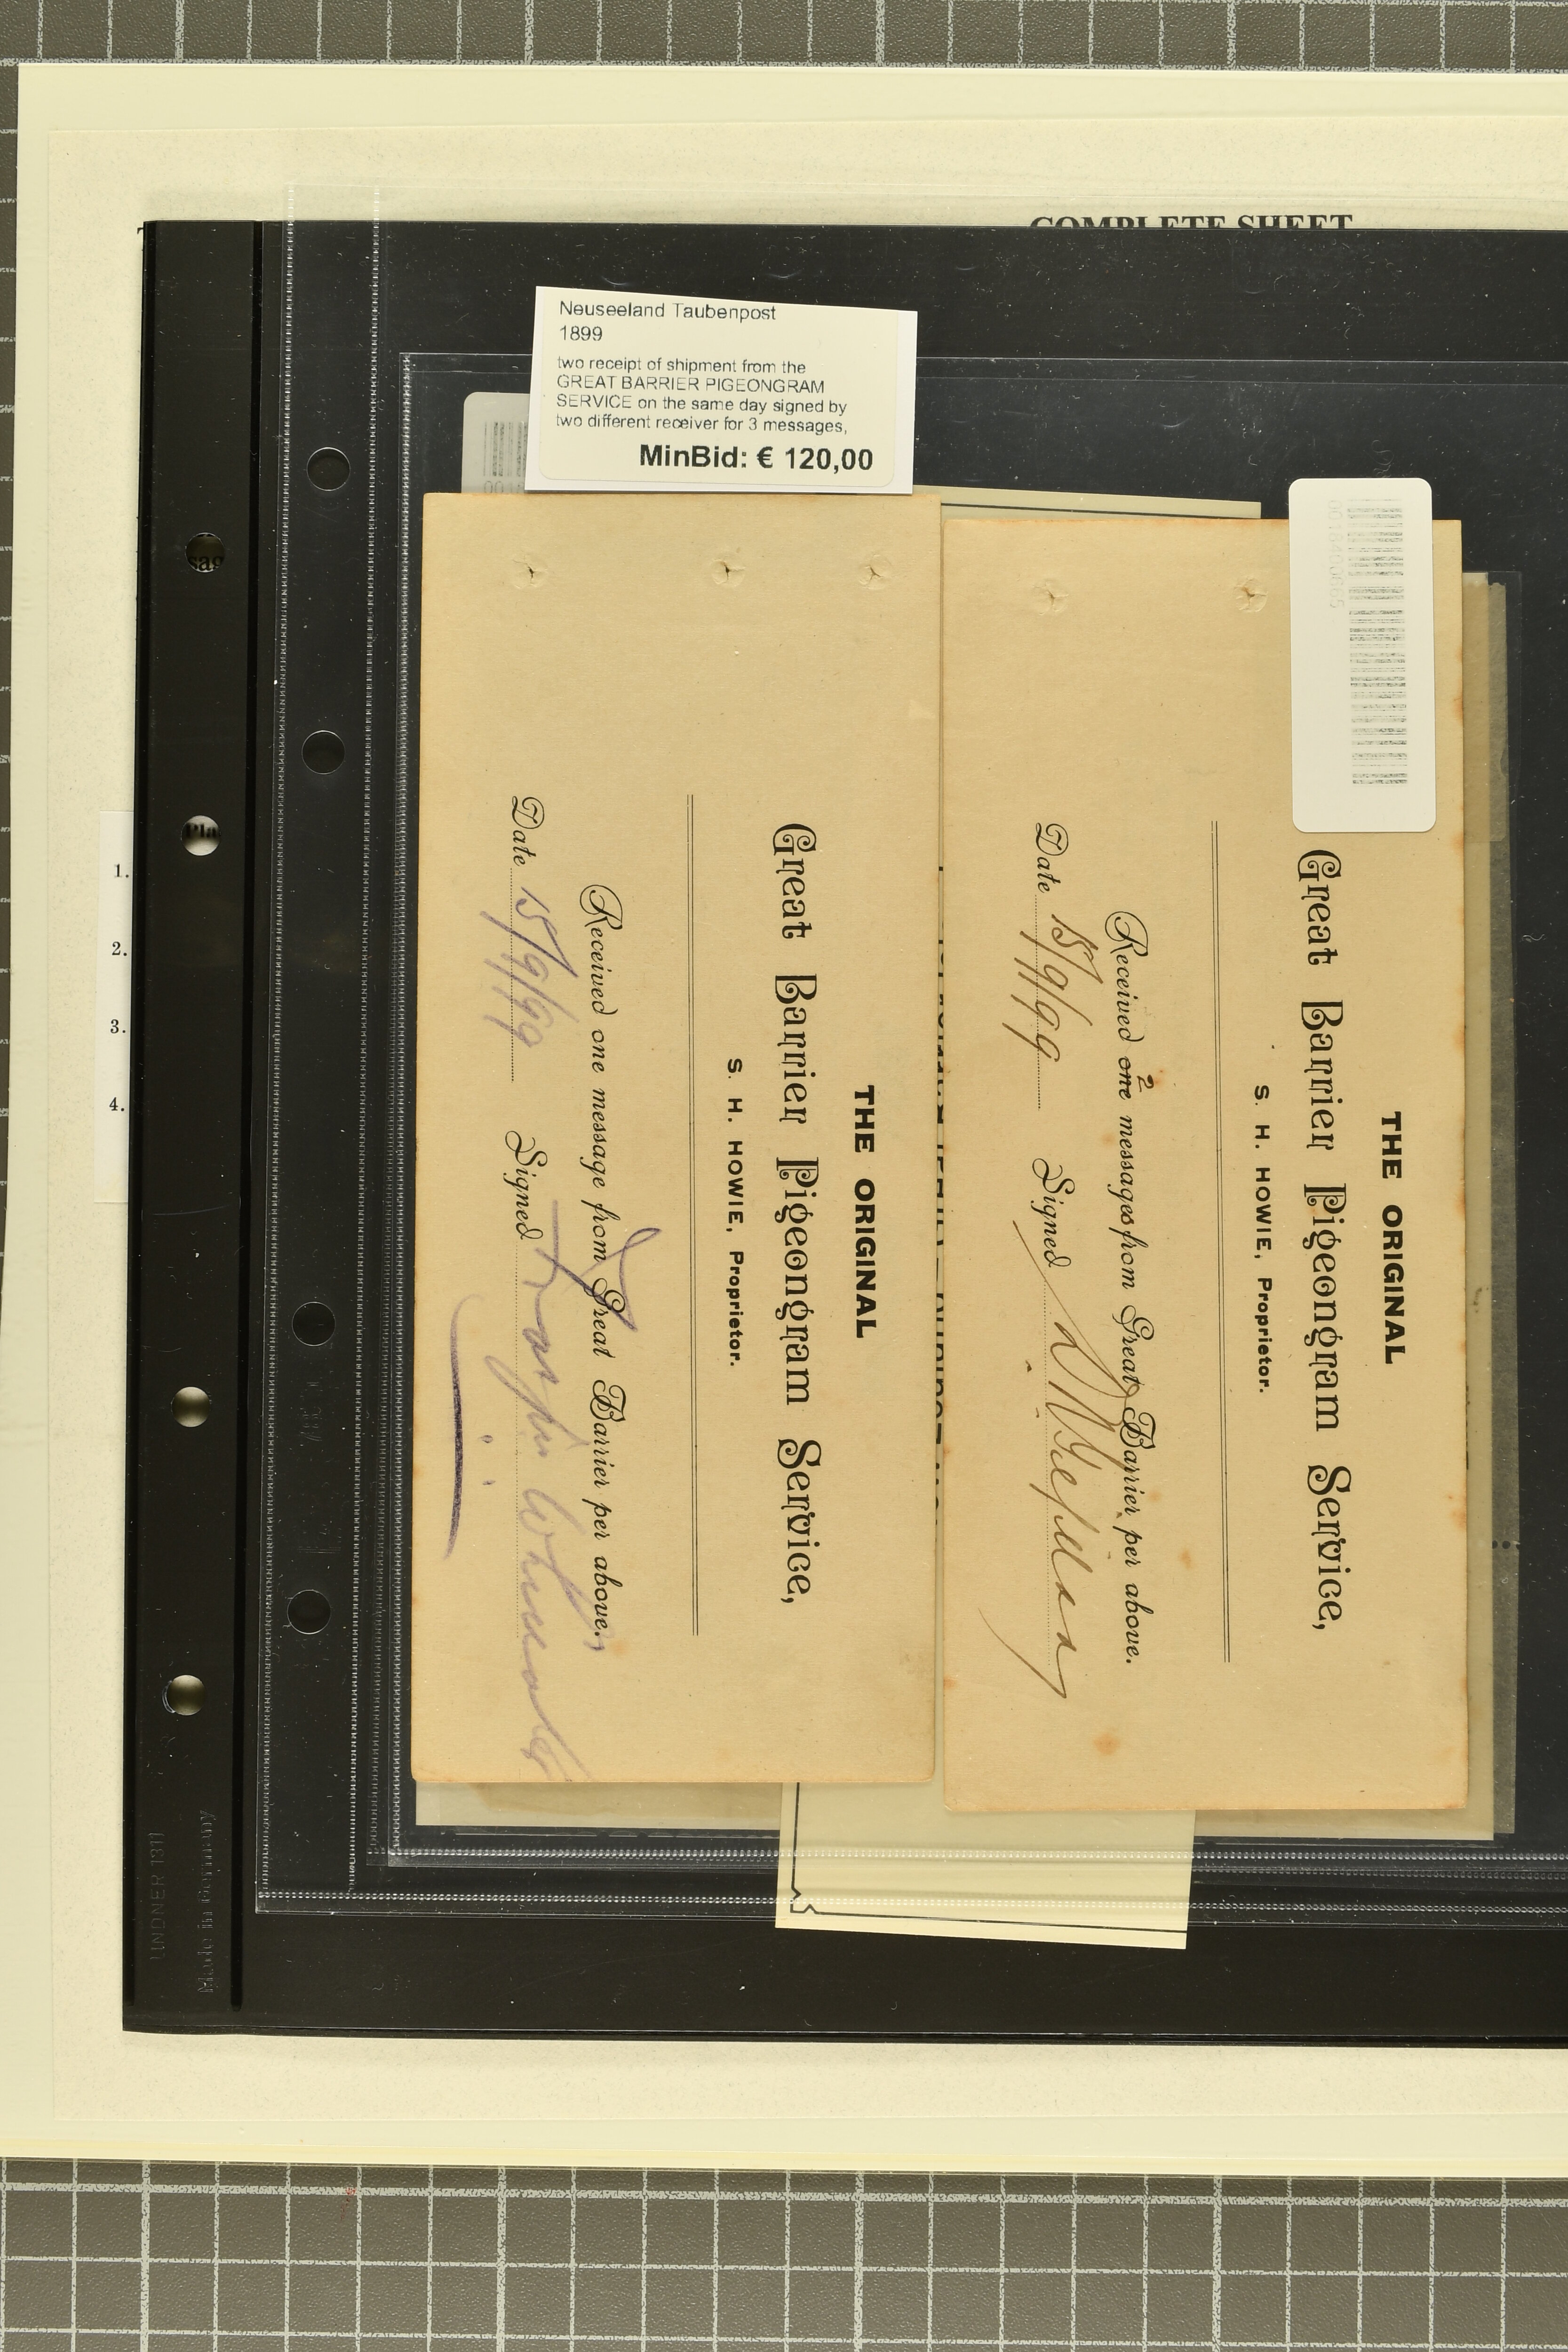 COMPLETE SHEET
Neuseeland Taubenpost
1899
two receipt of shipment from the
GREAT BARRIER PIGEONGRAM
SERVICE on the same day signed by
two different receiver for 3 messages,
MinBid: € 120,00
THE ORIGINAL
Great Barrier Pigeongram Service,
S. H. HOWIE, Proprietor.
Received one message from Great Barrier per above.
Date 15/9/99 Signed
THE ORIGINAL
Great Barrier Pigeongram Service,
S. H. HOWIE, Proprietor.
2
Received one messages from Great Barrier per above.
Date 15/9/99 Signed
sag
Pla
1.
2.
3.
4.
LINDNER
Made in Germany